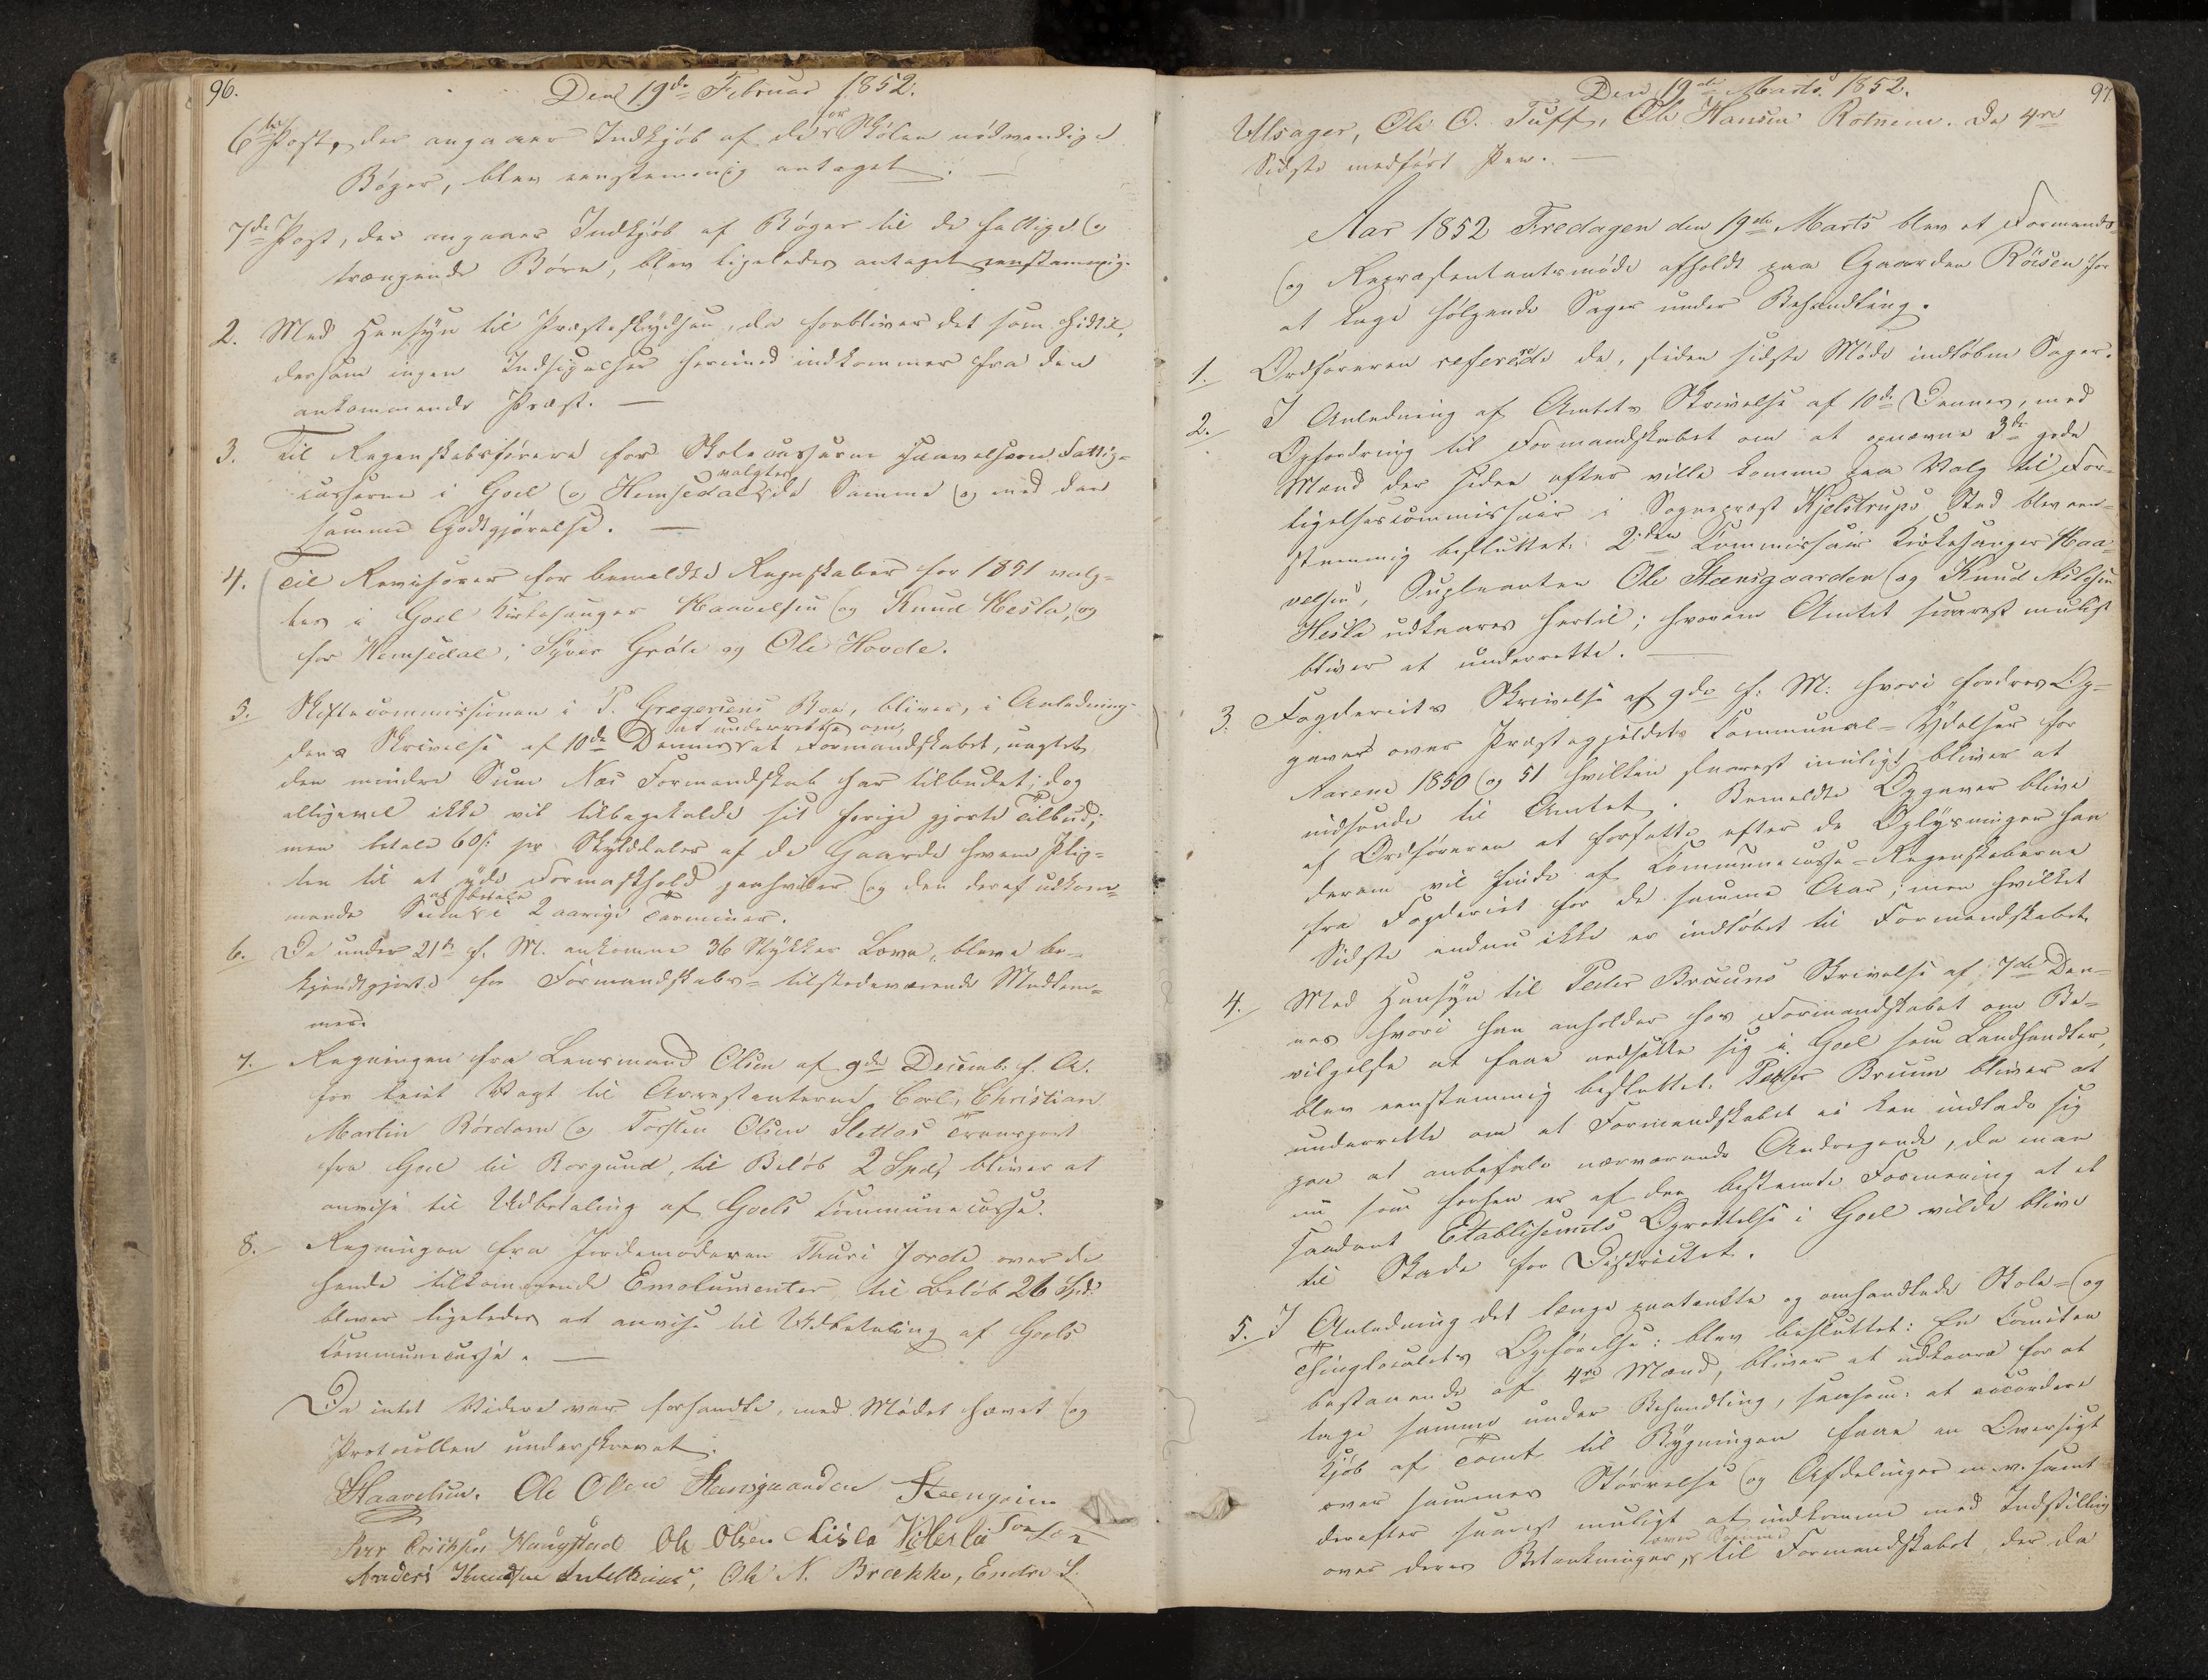 96.
Den 19de Februar 1852.
6te Post, der angaaer Indkjöb af de for Skolen nödvendige
Böger, blev eenstemmig antaget. —
7de Post, der angaaer Indkjöb af Böger til de fattige og
trængende Börn, blev ligeledes antaget eenstemmig.
2. Med Hensyn til Præsteskydsen, da forbliver det som hidtil,
dersom ingen Indsigelser herimod indkommer fra den
ankommende Præst. —
3. Til Regenskabsförere for Skolecasserne saavelsom Fattig-
casserne i Goel og Hemsedal valgtes de Samme og med den
samme Godtgjörelse. —
4. Til Revisorer for bemeldte Regnskaber for 1851 valg-
tes i Goel Kirkesanger Haavelsen og Knud Hesla, og
for Hemsedal, Syver Gröte og Ole Hovde.
5. Skiftecommissionen i P. Gregersens Boe, bliver, i Anledning
dens Skrivelse af 10de Dennes at underrette om, at Formandskabet, uagtet
den mindre Sum Næs Formandskab har tilbudet, dog
alligevel ikke vil tilbagekalde sit forige gjorte Tilbud;
men betale 60 s pr. Skylddaler af de Gaarde hvem Plig-
ten til at yde Formaskhold paahviler og den deraf udkom-
mende Sum at betale i 2 aarige Terminer.
6. De under 21de f. M. ankomne 36 Stykker Love, bleve be-
kjendtgjort for Formandskabs- tilstedeværende Medlem-
mer.
7. Regningen fra Lensmand Olsen af 9de Decemb. f. A.
for leiet Vagt til Arrestanterne Carl Christian
Martin Rördam og Torsten Olsen Slettos Transport
fra Goel til Borgund, til Belöb 2 Spd, bliver at
anvise til Udbetaling af Goels Communecasse.
8. Regningen fra Jordemoderen Thuri Jorde over de
hende tilkommende Emolumenter til Belöb 26 Spd.
bliver ligeledes at anvise til Udbetaling af Goels
Communecasse. —
Da intet Videre var forhandle, med Mödet hævet og
Protocollen underskrevet.
Haavelsen. Ole Olsen Steensgaarden Steengrim
Ole Olsen Hesla
Anders Knudsen, Ole N. Brække, Endre S.
97
Den 19de Marts 1852.
Ulsager, Ole O. Tuff, Ole Hansen Rotneim. De 4re
Sidste medfört Pen. —
Aar 1852 Fredagen den 19de Marts blev et Formands-
og Repræsentantsmöde afholdt paa Gaarden Röisen for
at tage fölgende Sager under Behandling.
1. Ordföreren refererede de, siden sidste Möde indlöbne Sager.
2. I Anledning af Amtets Skrivelse af 10de Dennes, med
Opfordring til Formandskabet om at opnævne 3de gode
Mænd der siden efter ville komme paa Valg til For-
ligelsescommissair i Sognepræst Kjelstrups Sted blev een-
stemmig besluttet: 2den Commissair Kirkesanger Haa-
velsen, Supleanten Ole Steensgaarden og Knud Nilssen
Hesla udkaares hertil; hvorom Amtet snarest muligst
bliver at underrette. —
3. Fogderiets Skrivelse af 9de f. M. hvori fordres Op-
gaver over Præstegjeldets Communal-Ydelser for
Aarene 1850 og 51 hvilken snarest muligt bliver at
indsende til Amtet. Bemeldte Opgaver blive
af Ordföreren at forfatte efter de Oplysninger han
derom vil finde af Communecasse-Regenskaberne
fra Fogderiet for de samme Aar; men hvilket
Sidste endnu ikke er indlöbet til Formandskabet.
4. Med Hensyn til Peder Bruuns Skrivelse af 7de Den-
nes hvori han anholder hos Formandskabet om Be-
vilgelse at faae nedsætte sig i Goel som Landhandler,
blev eenstemmig besluttet. Peder Bruun bliver at
underrette om at Formandskabet ei kan indlade sig
paa at anbefale nærværende Andragende, da man
nu som forhen er af den bestemte Formening at et
saadant Etablisements Oprettelse i Goel vilde blive
til Skade for Districtet.
5. I Anledning det længe paatænkte og omhandlede Skole- og
Thinglocalets Opförelse: blev besluttet: En Comiteen
bestaaende af 4re Mænd, bliver at udkaare for at
tage samme under Behandling, saasom: at accordere
Kjöb af Tomt til Bygningen faae en Oversigt
over sammes Störrelse og Afdelinger m. v. samt
derefter snarest muligt at indkomme med Indstilling
over deres Betænkninger over Samme til Formandskabet, der da